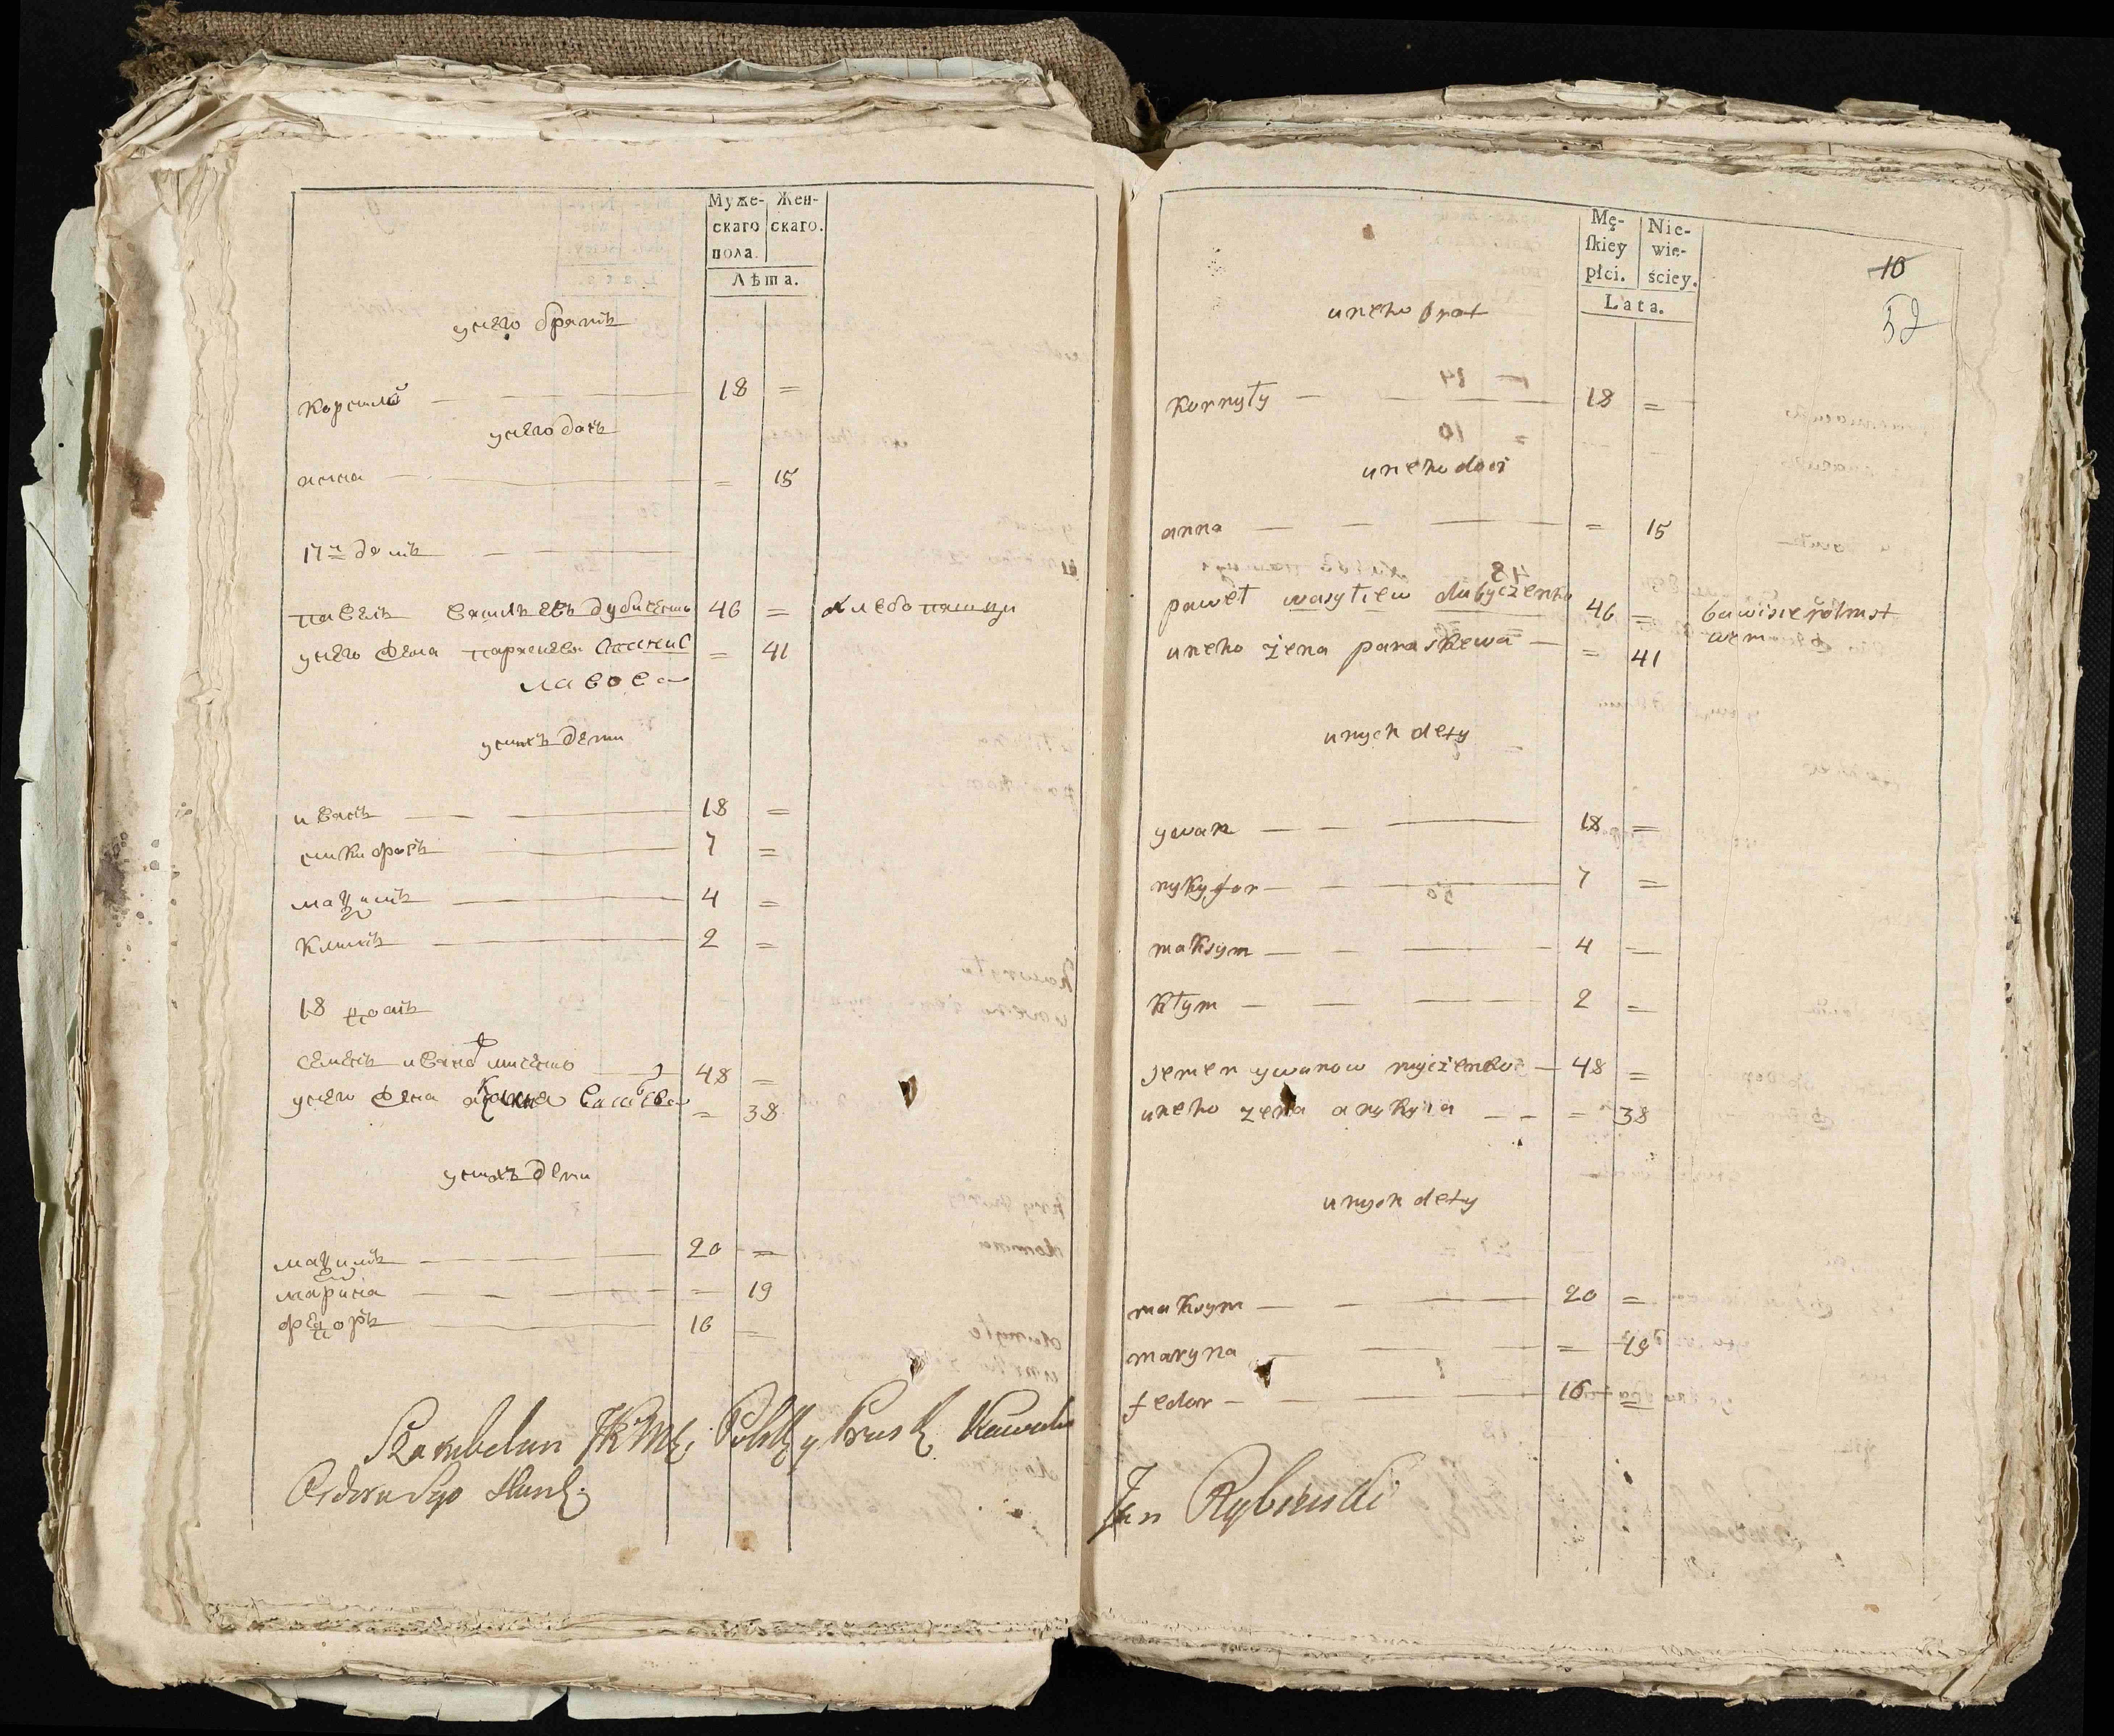 Муже-
скаго
пола.
Жен-
скаго.
Лѣта.
унего братъ
корнило 18 =
унего дочь
анна = 15
17й домъ
павелъ васильевъ дубиченко 46 = хлебопашцы
унего жена парасцева = 41
унихъ дети
иванъ 18 =
никифоръ 7 =
мазимъ 4 =
климъ 2 =
18 домъ
семенъ иванов 48 =
унего жена = 38
унихъ дети
мазимъ 20 =
марина = 19
федоръ 16 =
Szambelan JKMci Polski y Prusk Kawaler
Orderu Sgo Stanis:
Mę-
ſkiey
płci.
Nie-
wie-
ściey.
Lata.
10
52
uneho brat
kornyły 18 =
uneho doci
anna = 15
paweł wasyliew dubyczenko 46 = bawisie rolnist
wem
uneho żena paraskewa = 41
unych dety
ywan 18 =
nykyfor 7 =
maksym 4 =
kłym 2 =
semen ywanow myczenko 48 =
uneho zena anykyia = 38
unych dety
maksym 20 =
maryna = 19
fedor 16 =
Jan Rybinski